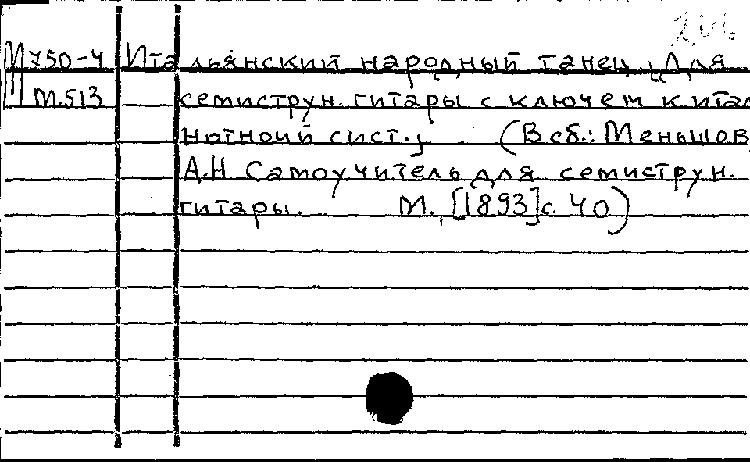 М 750-4 Итальянский народный танец. Для
М.513 семиструн. гитары с ключем к итал
нотной сист., . (В сб.: Меньшов
А.Н Самоучитель для семиструн.
гитары. М. [1893] с. 40)